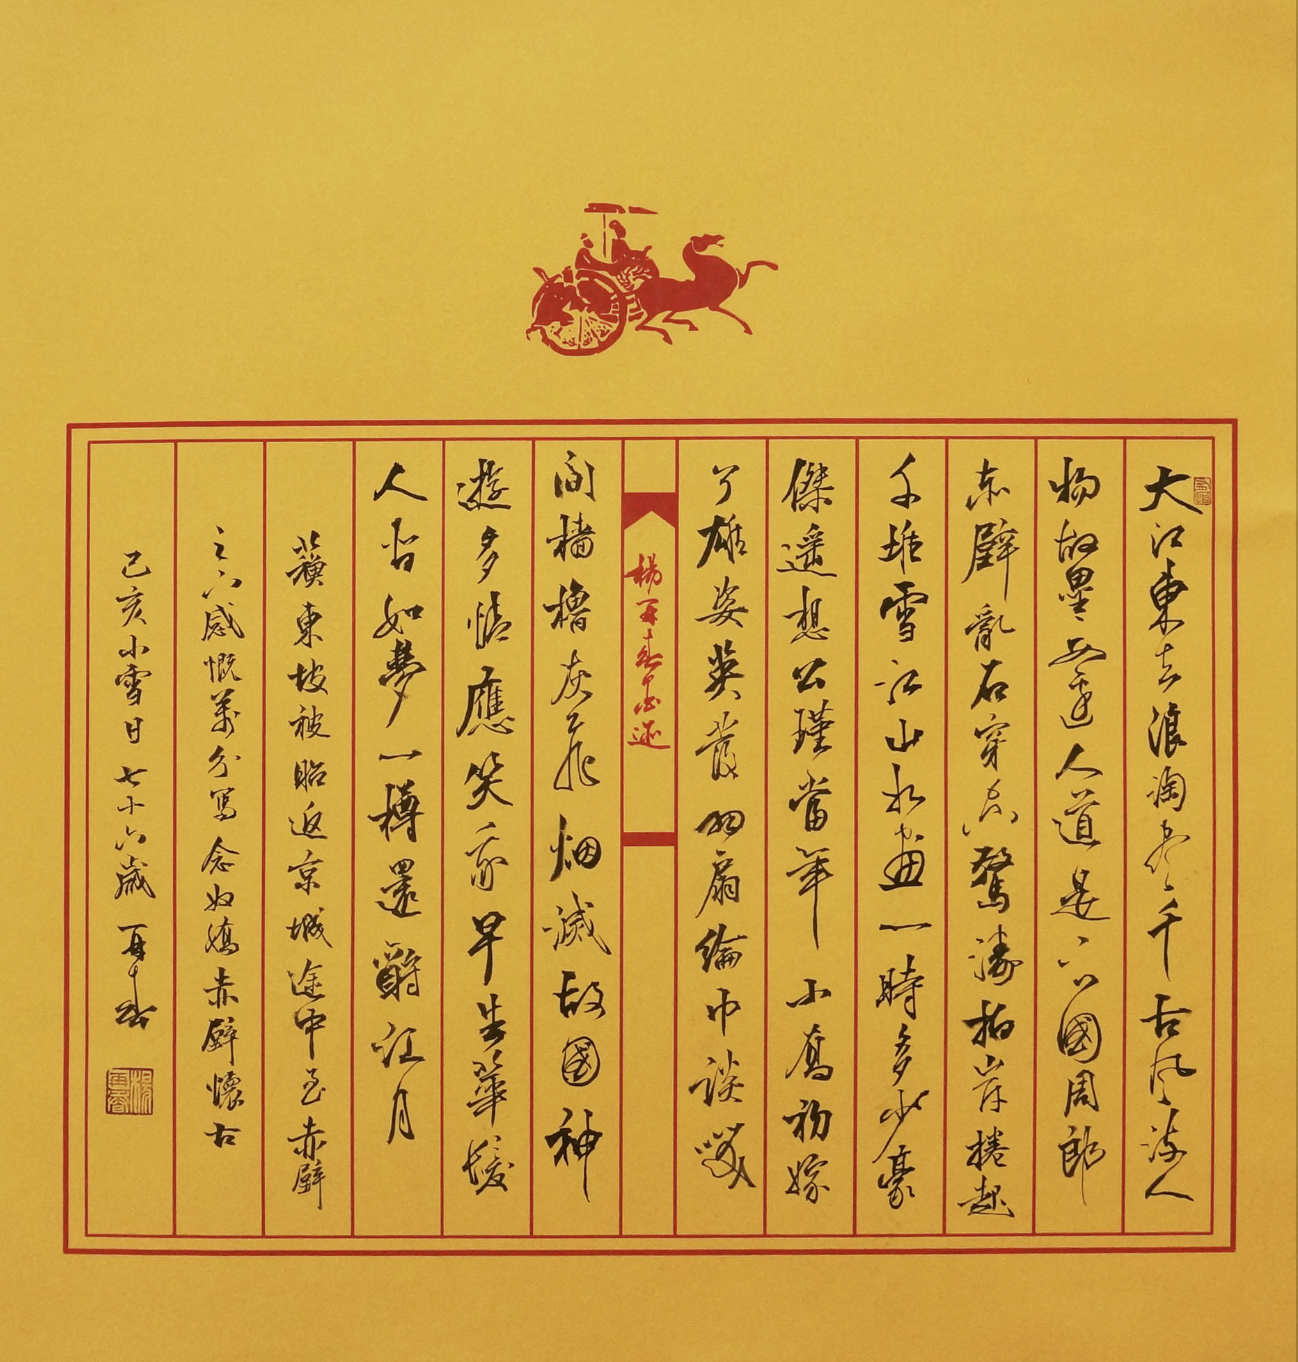 大江東去浪淘盡千古風流人
物故壘西邊人道是三國周郎
赤壁亂石穿空驚濤拍岸捲起
千堆雪江山如畫一時多少豪
傑遥想公瑾當年小喬初嫁
了雄姿英發羽扇綸巾談笑
楊再春迹
间檣櫓灰飛烟滅故國神
遊多情應笑我早生華髮
人如夢一樽還酹江月
蘇東坡被貶返京城途中至赤壁
之下感慨萬分寫念奴嬌赤壁懷古
己亥小雪日七十六歲再春
楊再春